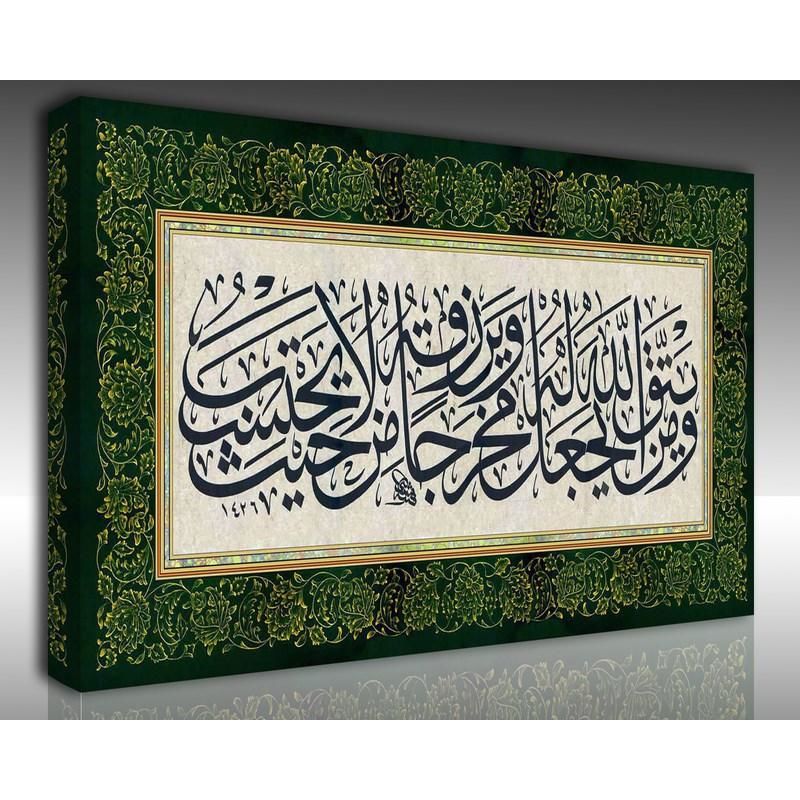 ومن يتق الله يجعل له مخرجا ويرزقه من حيث لا يحتسب
١٤٢٦